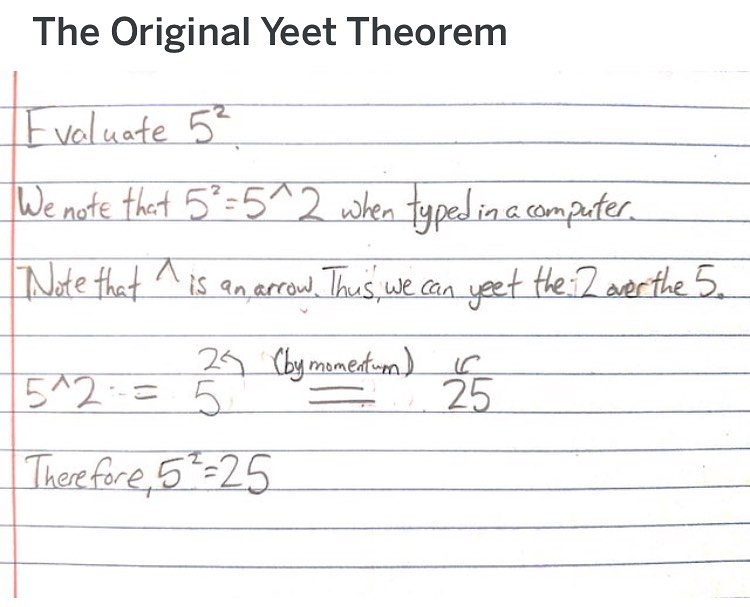 The Original Yeet Theorem
Evaluate 5².
We note that 5²=5^2 when typed in a computer.
Note that ^ is an arrow. Thus, we can yeet the 2 over the 5.
2 (by momentum)
5^2 = 5 = 25
Therefore, 5²=25